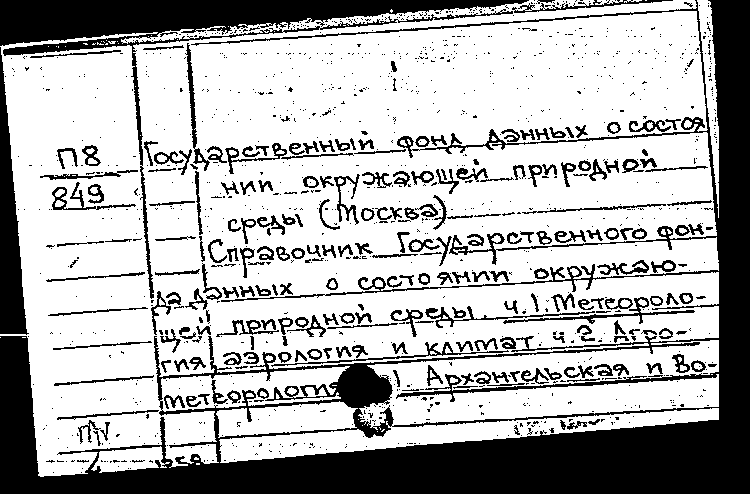 П8
849
Государственный фонд данных о состоя
нии окружающей природной
среды (Москва)
Справочник Государственного фон-
да данных о состоянии окружаю-
щей природной среды. ч.1. Метеороло-
гия, аэрология и климат. ч.2. Агро-
метеорология Архангельская и Во-